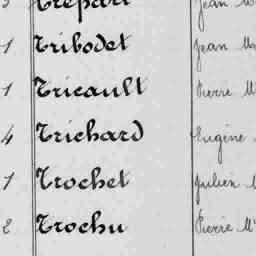 Trépart Jean
1 Tribodet Jean
1 Tricault Pierre M
4 Trichard Eugène
1 Trochet Julien
2 Trochu Pierre M